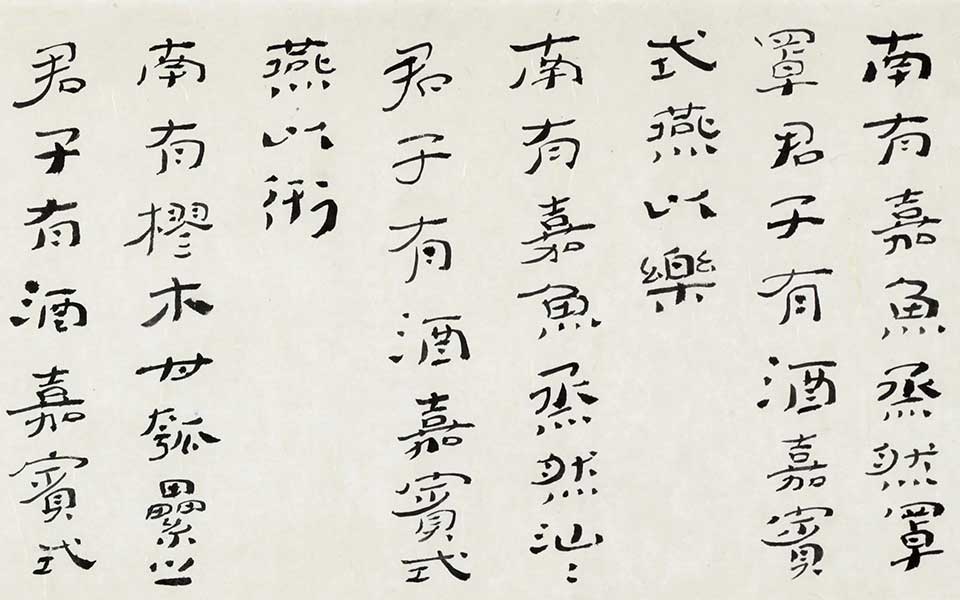 南有嘉魚烝然罩
罩君子有酒嘉賓
式燕以樂
南有嘉魚烝然汕〻
君子有酒嘉賓式
燕以衎
南有樛木甘瓠纍之
君子有酒嘉賓式